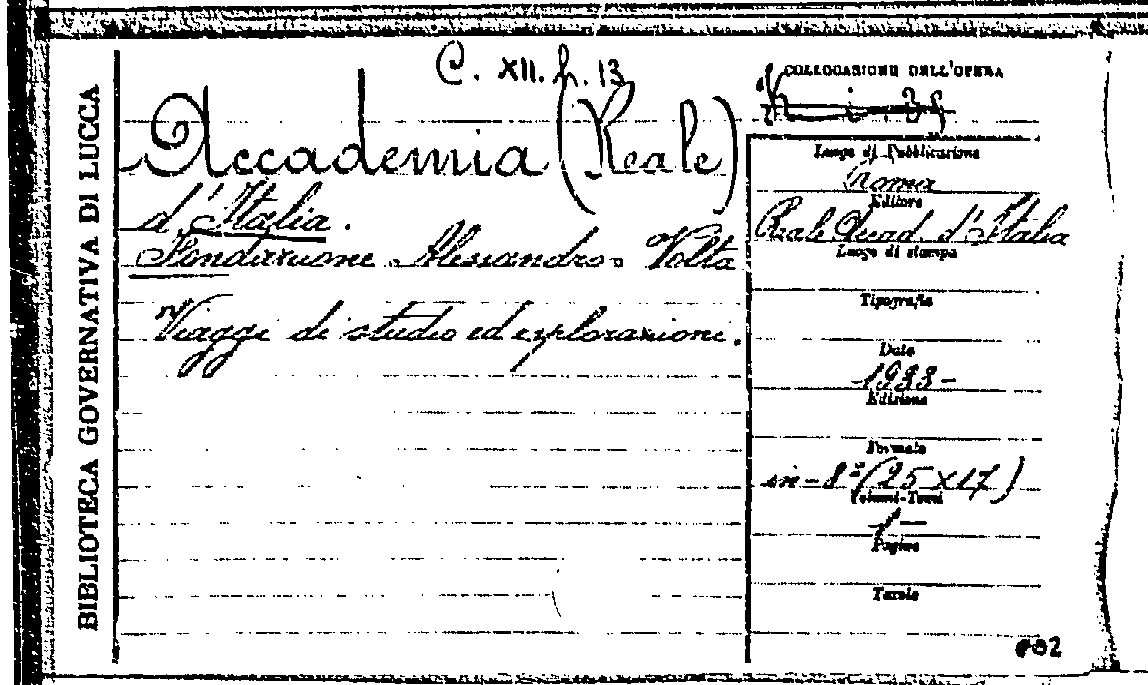 BIBLIOTECA GOVERNATIVA DI LUCCA
C. XII. h. 13
Accademia (Reale)
d'Italia.
Fondazione Alessandro Volta
Viaggi di studio ed esplorazione.
COLLOCAZIONE DELL'OPERA
Luogo di Pubblicazione
Roma
Editore
Reale Acad. d'Italia
Luogo di stampa
Tipografia
Data
1933-
Edizione
Formato
in-8º (25x17)
Volumi-Tomi
1-
Pagine
Tavole